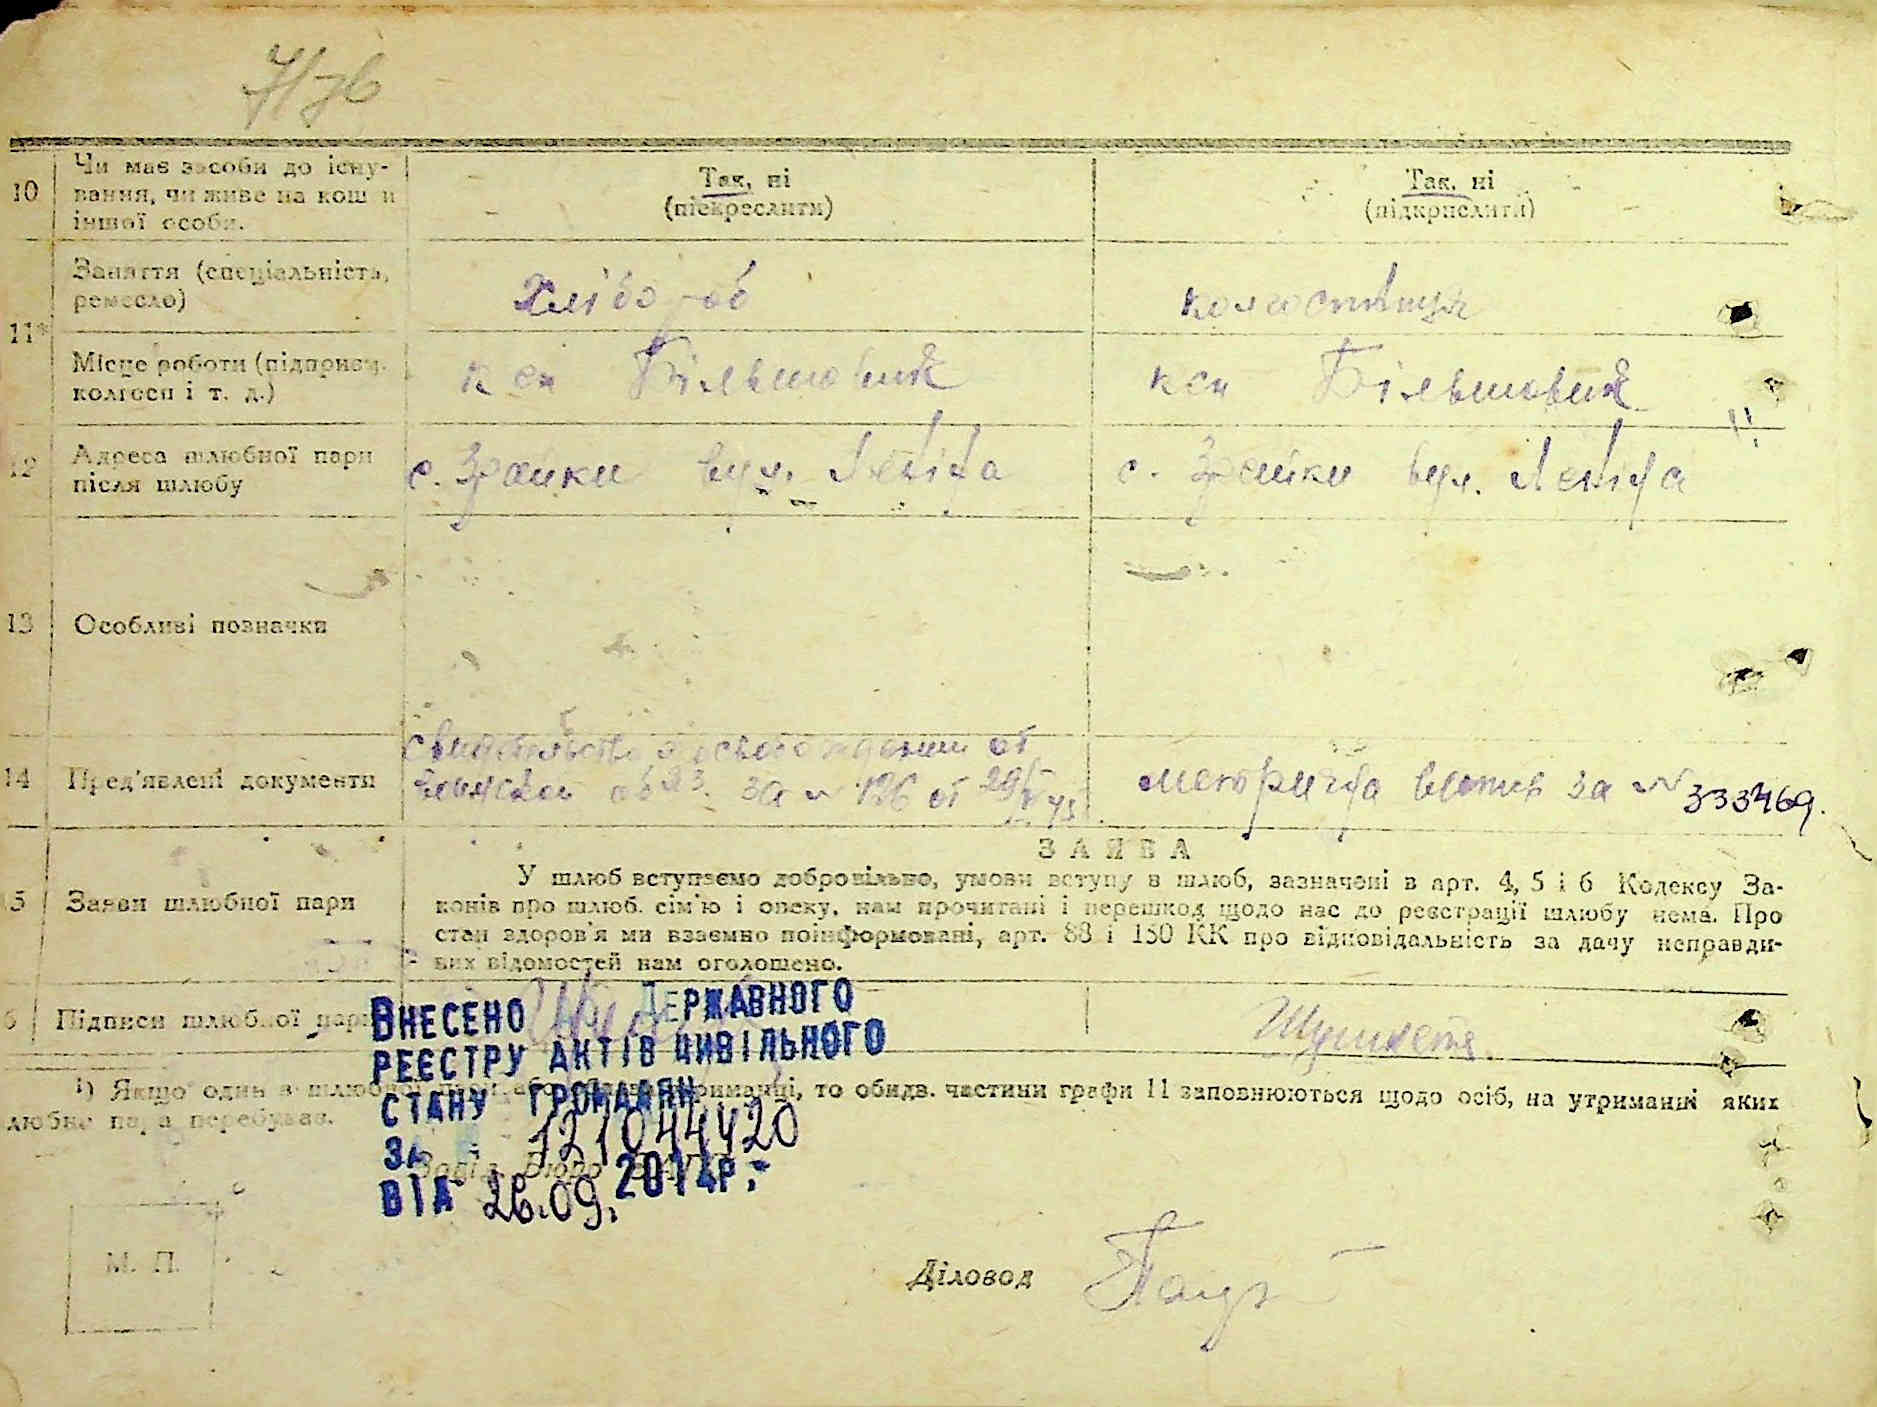 7/36
10
Чи має засоби до існу-
вання, чи живе на кош и
іншої особи.
Так, ні
(підкреслити)
Так, ні
(підкрислити)
11*
Заняття (спеціальність,
ремесло)
Хлібороб
колгоспниця
Місце роботи (підприєм.
колгосп і т. д.)
ксп Більшовик
ксп Більшовик
12
Адреса шлюбної пари
після шлюбу
с. Зрайки вул. Леніна
с. Зрайки вул. Леніна
13
Особливі позначки
14
Пред'явлені документи
Свидетельство о освобождении от
воинской об за № 126 от 29/V 45
метрична випис за № 333469.
ЗАЯВА
15
Заяви шлюбної пари
У шлюб вступаємо добровільно, умови вступу в шлюб, зазначені в арт. 4, 5 і 6 Кодексу За-
конів про шлюб. сім'ю і опеку, нам прочитані і перешкод щодо нас до реєстрації шлюбу нема. Про
стан здоров'я ми взаємно поінформовані, арт. 88 і 150 КК про відповідальність за дачу неправди-
вих відомостей нам оголошено.
6
Підписи шлюбної пари
ВНЕСЕНО ДО ДЕРЖАВНОГО
РЕЄСТРУ АКТІВ ЦИВІЛЬНОГО
СТАНУ ГРОМАДЯН
ЗА 121044420
ВІД 26.09. 2014Р.
¹) Якщо один з шлюбної пари або утриманці, то обидв. частини графи 11 заповнюються щодо осіб, на утриманні яких
любна пара перебуває.
Завід. Бюро
М. П.
Діловод